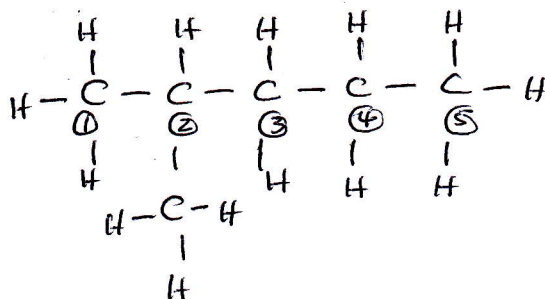 H H H H H
H – C – C – C – C – C – H
① ② ③ ④ ⑤
H H H H
H – C – H
H